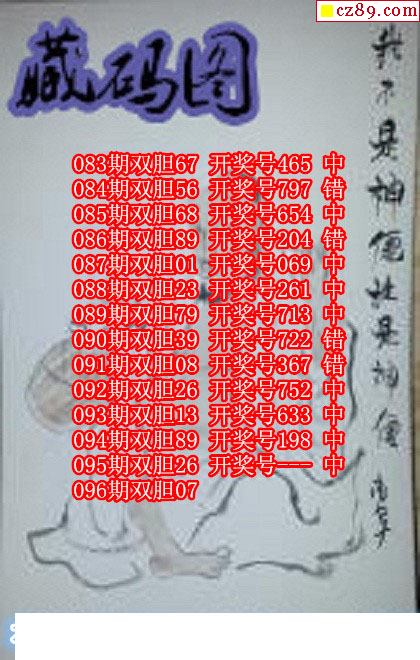 cz89.com
藏码图
083期双胆67 开奖号465 中
084期双胆56 开奖号797 错
085期双胆68 开奖号654 中
086期双胆89 开奖号204 错
087期双胆01 开奖号069 中
088期双胆23 开奖号261 中
089期双胆79 开奖号713 中
090期双胆39 开奖号722 错
091期双胆08 开奖号367 错
092期双胆26 开奖号752 中
093期双胆13 开奖号633 中
094期双胆89 开奖号198 中
095期双胆26 开奖号--- 中
096期双胆07
我不是神但
是神